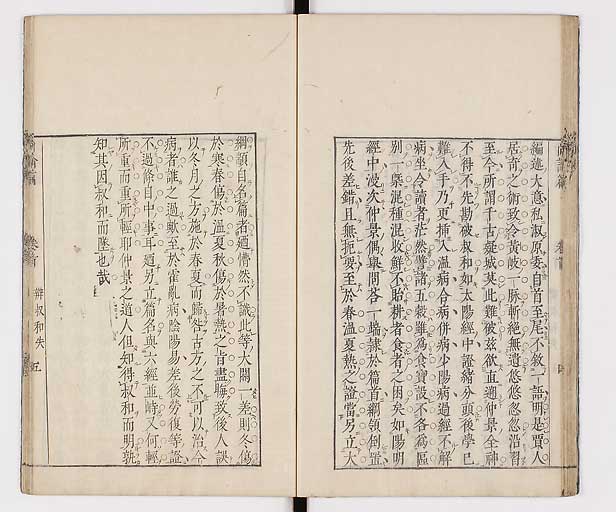 尚論篇 卷首
編述大意私淑原委自首至尾不敘一語明是賈人
居奇之術致令黃岐一脈斬絕無遺悠悠忽忽沿習
至今所謂千古疑城莫此難破茲欲直遡仲景全神
不得不先勘破叔和如太陽經中證緒分頭後學已
難入手乃更插入溫病合病併病少陽病過經不解
病坐令讀者茫然譬諸五穀雖為食寶設不各為區
別一槩混種混收鮮不貽耕者食者之困矣如陽明
經中漫次仲景偶舉問答一端隸於篇首綱領倒置
先後差錯且無扼要至於春溫夏熱之證當另立大
綱顓自名篇者迺懵然不識此等大關一差則冬傷
於寒春傷於溫夏秋傷於暑熱之旨盡晦致後人誤
以冬月之方施於春夏而歸咎古方之不可以治今
病者誰之過歟至於霍亂病陰陽易差後勞復等證
不過條目中事耳迺另立篇名與六經並峙又何輕
所重而重所輕耶仲景之道人但知得叔和而明孰
知其因叔和而墜也哉
尚論篇 卷首 辨叔和失 五